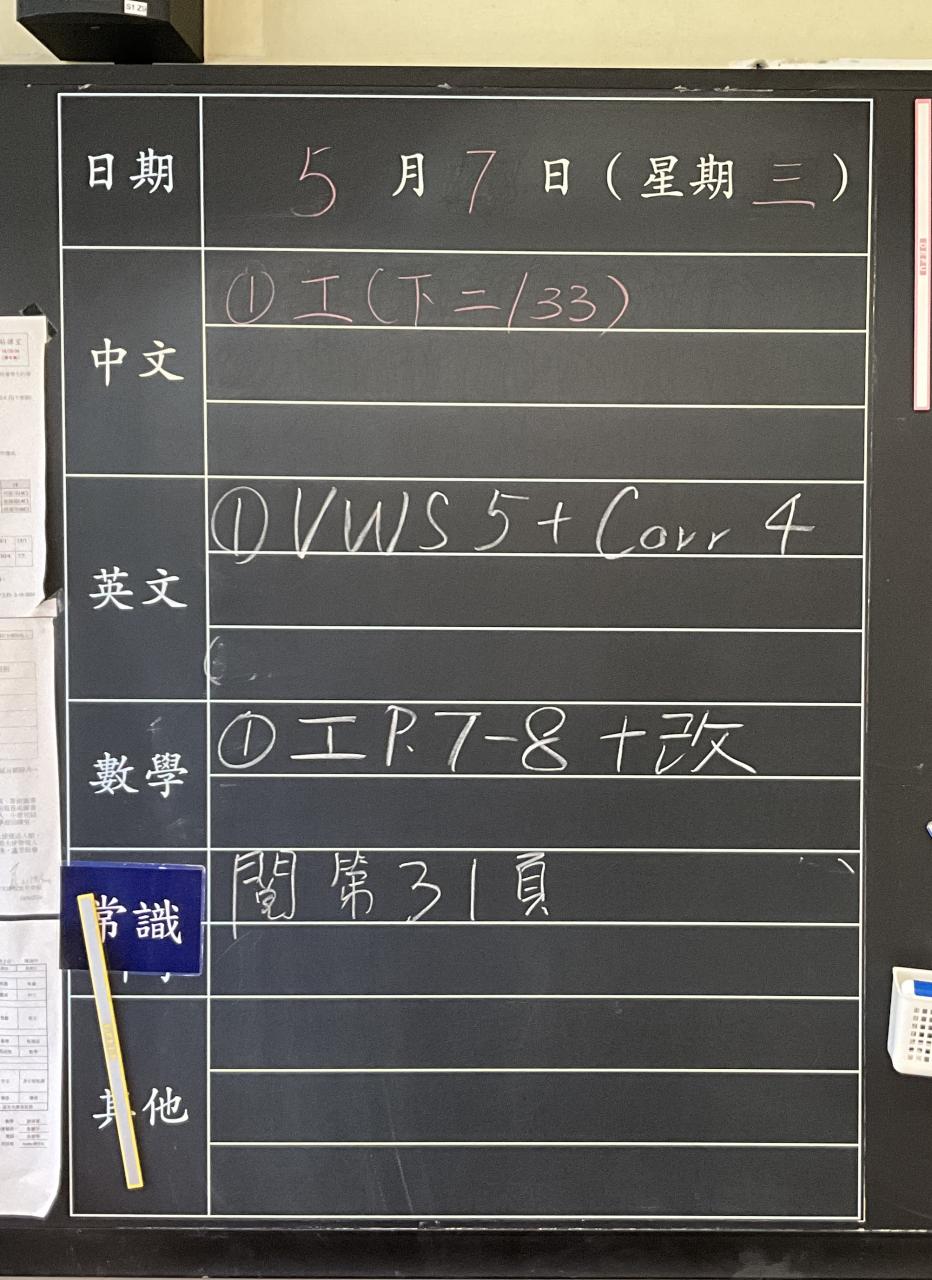 S1 ZS
日期 5 月 7 日 ( 星期 三 )
中文 ① 工 (下二/33)
英文 ① VWS 5 + Corr 4
數學 ① 工 P. 7-8 + 改
常識 閱 第 31 頁
其他